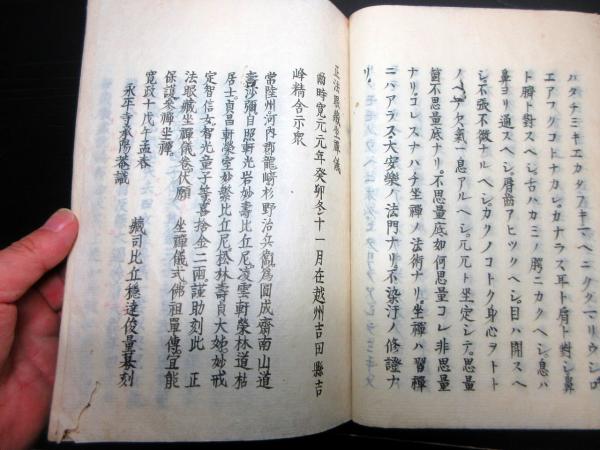 ハタチミキエカタフキマヘニクヽマリウシロ
エアフノクコトナカレ。カナラス耳ト肩ト對シ鼻
ト臍ト對スヘシ。舌ハカミノ腭ニカクヘシ。息ハ
鼻ヨリ通スヘシ。脣齒アヒツクヘシ。目ハ開スヘ
シ。不張不微ナルヘシ。カクノコトク身心ヲトト
ノヘテ欠氣一息アルヘシ。兀兀ト坐定シテ。思量
箇不思量底ナリ。不思量底。如何思量コレ非思量
ナリ。コレスナハチ坐禪ノ法術ナリ。坐禪ハ習禪
ニハアラス。大安樂ノ法門ナリ。不染汙ノ修證ナ
リ。
正法眼藏坐禪儀
爾時寬元元年癸卯冬十一月在越州吉田縣吉
峰精舍示衆
常陸州河內郡龍崎杉野治兵觀爲圓成齋南山道
壽沙彌自照軒光岩妙壽比丘尼凌雲軒榮林道枯
居士貞昌軒榮室妙繁比丘尼松林壽貞大姊妙戒
定智信女智光童子等喜捨金二兩謹助刻此　正
法眼藏坐禪儀卷伏願　坐禪儀式佛祖單傳宜能
保護來禪坐禪。
寬政十戊午孟春　藏司比丘穩達俊量募刻
永平寺承陽菴識